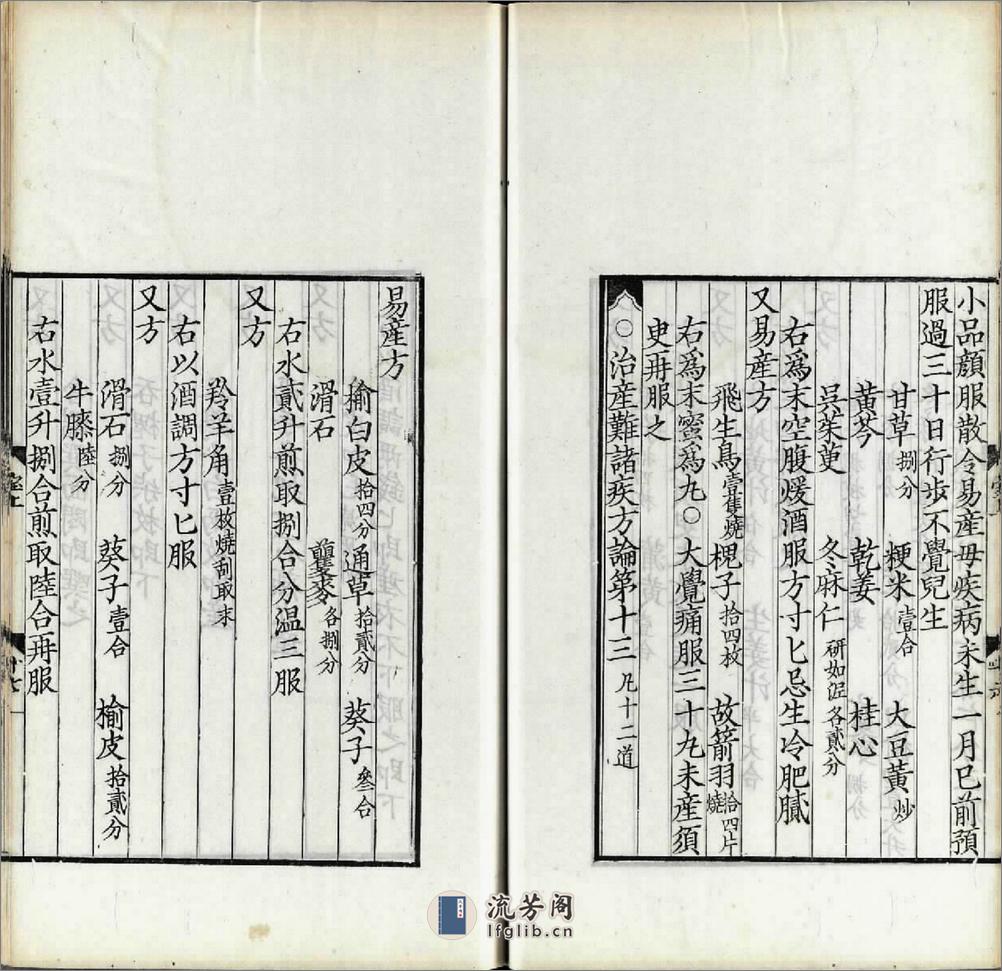 小品顔服散令易産毋疾病未生一月已前預
服過三十日行步不覺兒生
甘草捌分 粳米壹合 大豆黄炒
黄芩 乾姜 桂心
吳茱萸 冬麻仁研如泥各貳分
右爲末空腹煖酒服方寸匕忌生冷肥膩
又易産方
飛生鳥壹隻燒 槐子拾四枚 故箭羽拾四片燒
右爲末蜜爲九〇大覺痛服三十九未産須
㕜再服之
〇治産難諸疾方論第十三 凡十二道
易産方
榆白皮拾四分 通草拾貳分 葵子叄合
滑石 瞿麥各捌分
右水貳升煎取捌合分温三服
又方
羚羊角壹枚燒刮取末
右以酒調方寸匕服
又方
滑石捌分 葵子壹合 榆皮拾貳分
牛膝陸分
右水壹升捌合煎取陸合再服
流芳阁
lfglib.cn